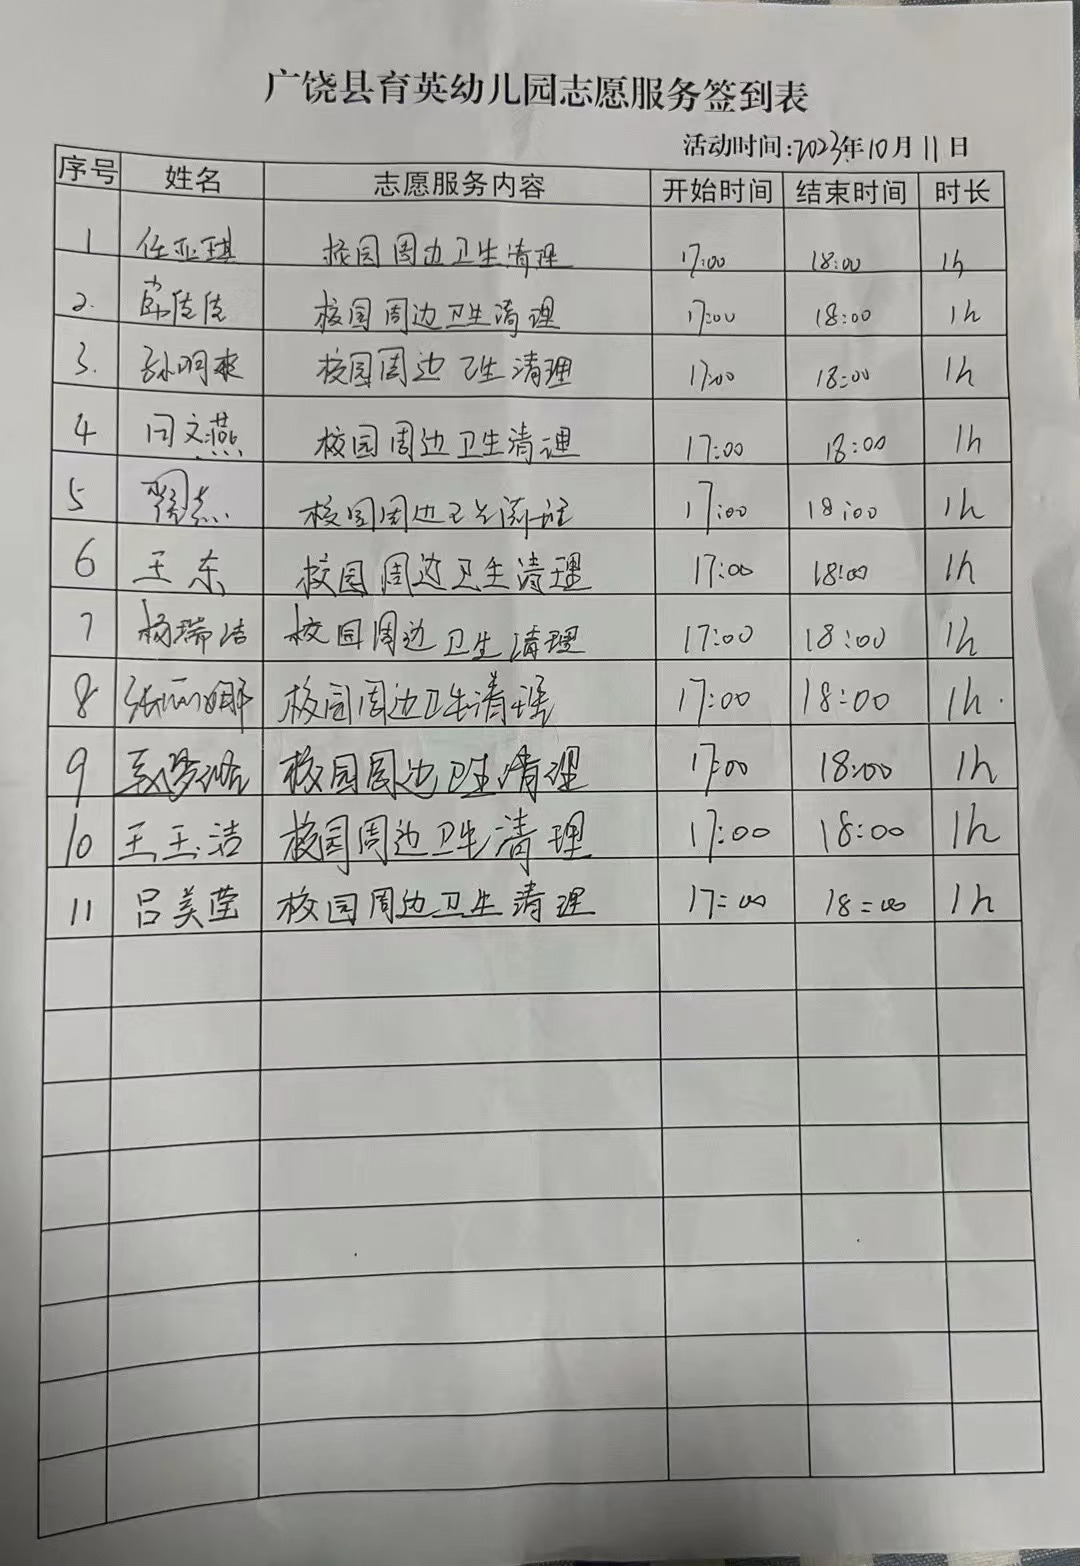 广饶县育英幼儿园志愿服务签到表
活动时间:2023年10月11日
序号 姓名 志愿服务内容 开始时间 结束时间 时长
1 任亚琪 校园周边卫生清理 17:00 18:00 1h
2. 薛佳佳 校园周边卫生清理 17:00 18:00 1h
3. 孙明爽 校园周边卫生清理 17:00 18:00 1h
4 闫文燕 校园周边卫生清理 17:00 18:00 1h
5 校园周边卫生清理 17:00 18:00 1h
6 王东 校园周边卫生清理 17:00 18:00 1h
7 杨瑞洁 校园周边卫生清理 17:00 18:00 1h
8 张丽娜 校园周边卫生清理 17:00 18:00 1h.
9 校园周边卫生清理 17:00 18:00 1h
10 王玉洁 校园周边卫生清理 17:00 18:00 1h
11 吕美莹 校园周边卫生清理 17:00 18:00 1h